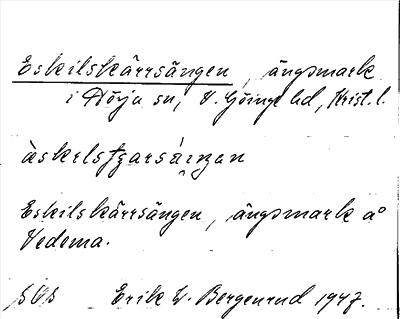 Eskilskärrsängen, ängsmark
i Nörja sn, V. Göinge hd, Krist. l.
Eskilskärrsängen, ängsmark å
Vedema.
Erik W. Bergenrud 1947.